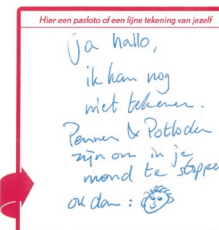 Hier een pasfoto of een fijne tekening van jezelf
ja hallo,
ik kan nog
niet tekenen.
Pennen & Potloden
zijn om in je
mond te stoppen
ok dan :